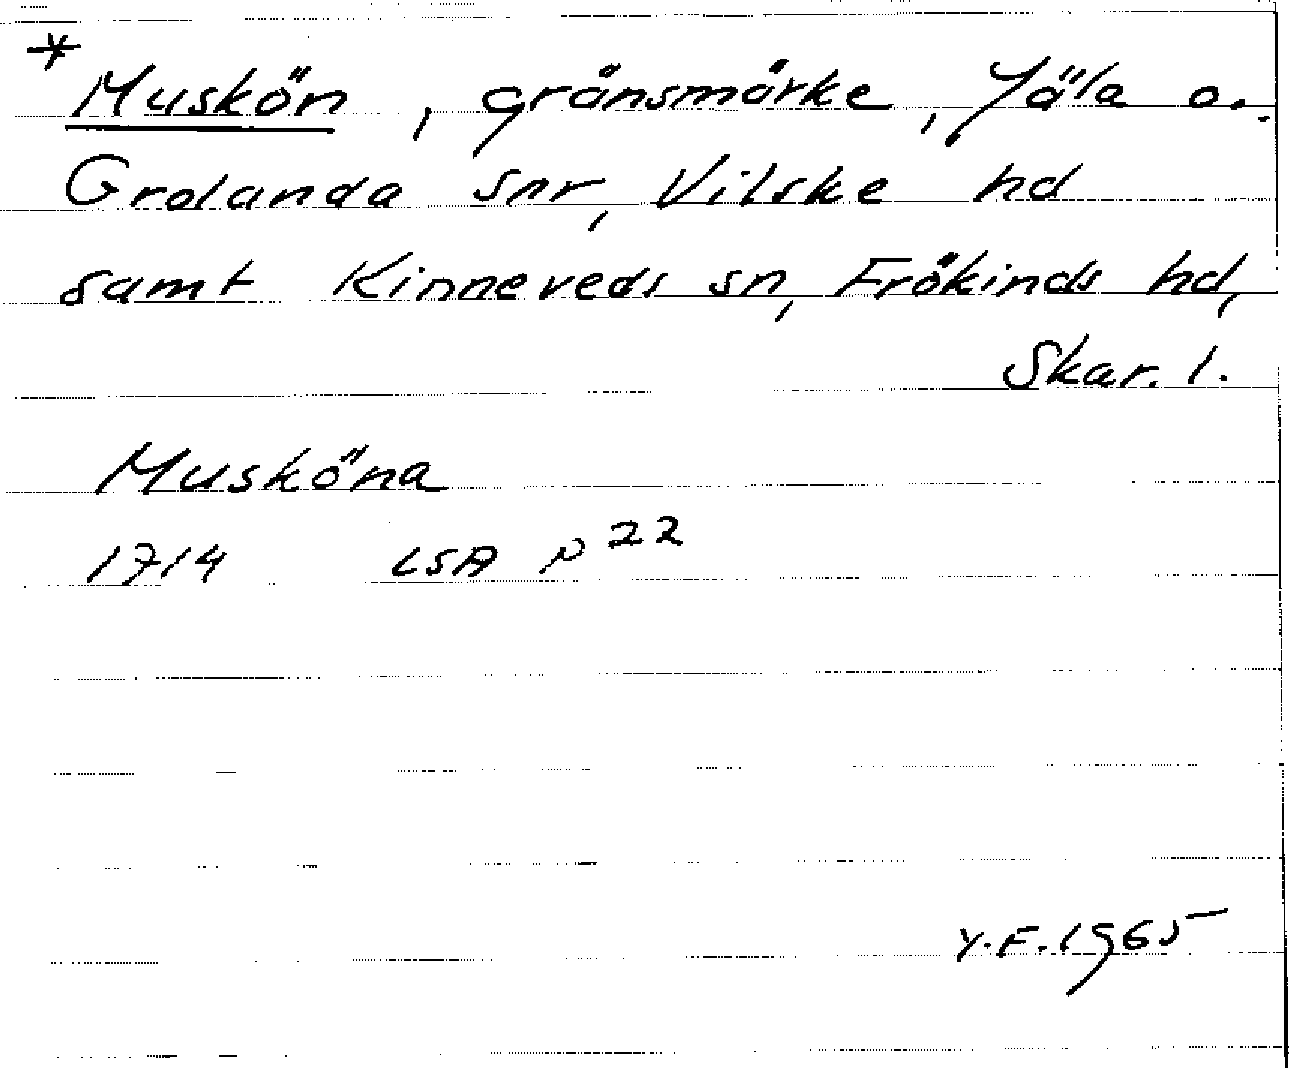 * Muskön, gränsmärke, Jäla o.
Grolanda snr, Vilske hd
samt Kinneveds sn, Frökinds hd,
Skar. l.
Musköna
1714 LSA P 22
Y.F. 1965